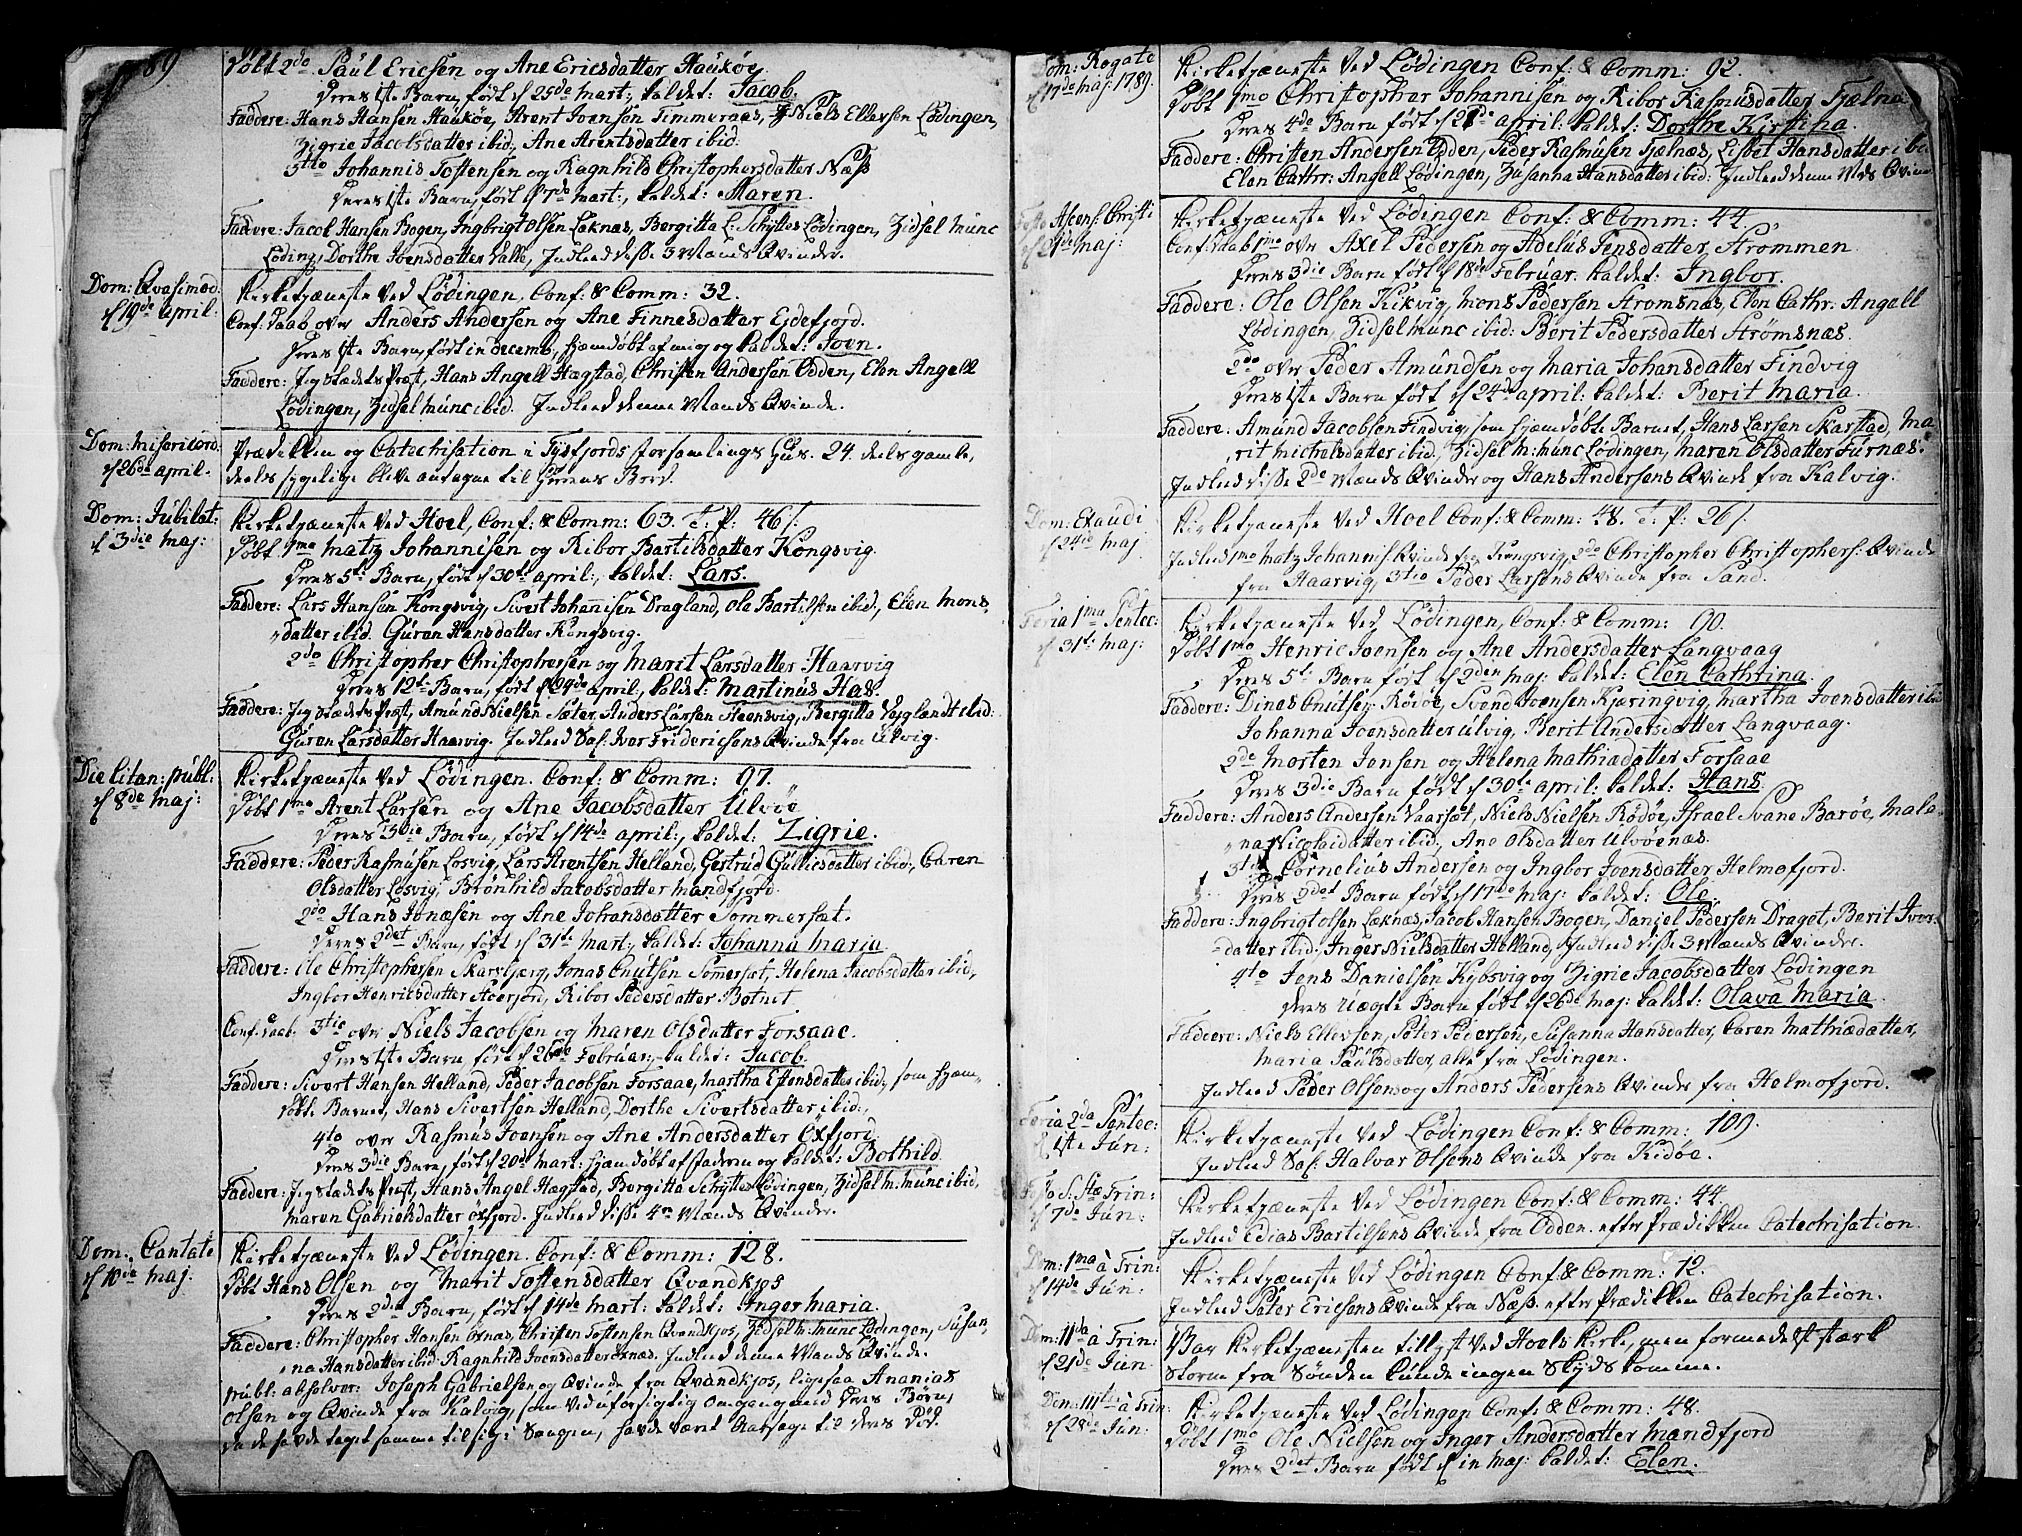 1789
Døbt 2do Paul Ericsen og Ane Ericsdatter Haukøe
Deres 1ste Barn, født d 25de Mart:, kaldet: Jacob.
Faddere: Hans Hansen Haukøe, Arent Joensen Timmernæs, Niels Ellevsen Lødingen,
Zigrie Jacobsdatter ibid, Ane Arentsdatter ibid.
3tio Johannis Toftensen og Ragnhild Christophersdatter Næss
Deres 1ste Barn, født d 7de Mart:, kaldet: Maren.
Faddere: Jacob Hansen Bogen, Ingbrigt Olsen Læknæs, Bergitta L: Schyttes Lødingen, Zidsel Munc
Løding, Dorthe Joensdatter Valle, Indleed disse 3 Mænds Qvinder.
Dom: Qvasimod.
d 19de April:
Kirketjæneste ved Lødingen, Conf: & Comm: 32.
Conf: Daab over Anders Andersen og Ane Finnesdatter Eidefjord.
Deres 1ste Barn, født in Decemb, hjemdøbt af mig og kaldet: Joen.
Faddere: Jeg stedets Præst, Hans Angell Hægstad, Christen Andersen Odden, Elen Angell
Lødingen, Zidsel Munc ibid. Indleed denne Mands Qvinde.
Dom: Misericord
d 26de April.
Prædikken og Catechisation i Tysfjords Forsamlings Huus. 24 deels gamle
deels sygelige bleve antagne til Herrens Bord.
Dom: Jubilat:
d 3die Maj:
Kirketjæneste ved Hoel, Conf: & Comm: 63. T: P: 46/.
Døbt 1mo Matz Johannisen og Ribor Bartilsdatter Kongsvig.
Deres 5te Barn, født d 30te April:, kaldet: Lars.
Faddere: Lars Hansen Kongsvig, Sivert Johannisen Dragland, Ole Bartilsen ibid, Elen Mons,
datter ibid. Guren Hansdatter Kongsvig.
2do Christopher Christophersen og Marit Larsdatter Haarvig
Deres 12te Barn, født d 29de April, kaldet: Martinus Has.
Faddere: Jeg stedets Præst, Amund Nielsen Sæter, Anders Larsen Steensvig, Bergitta Voglandt ibid:
Guren Larsdatter Haarvig. Indleed Sal: Iver Friderichsens Qvinde fra Ulvig.
Die Litan: publ:
d 8de Maj:
Kirketjæneste ved Lødingen. Conf: & Comm: 97.
Døbt 1mo Arent Larsen og Ane Jacobsdatter Ulvøe
Deres 3die Barn, født d 14de April:, kaldet: Zigrie.
Faddere: Peder Rasmusen Losvig, Lars Arentsen Helland, Gertrud Gullicsdatter ibid, Caren
Olsdatter Losvig, Brønhild Jacobsdatter Mandfjord.
2do Hans Jonæsen og Ane Johansdatter Sommersæt.
Deres 2det Barn, født d 31te Mart:, kaldet: Johanna Maria.
Faddere: Ole Christophersen Skarsbjerg, Jonas Cnutsen Somersæt, Helena Jacobsdatter ibid,
Ingbor Henricsdatter, Ribor Pedersdatter Botnet
Conf: Daab. 3tio over Niels Jacobsen og Maren Olsdatter Forsaae.
Deres 1ste Barn, født d 26de Februar, kaldet: Jacob.
Faddere: Sivert Hansen Helland, Peder Jacobsen Forsaae, Martha Estensdatter ibid, som hjem-
døbte Barnet, Hans Sivertsen Helland, Dorthe Sivertsdatter ibid.
4to over Rasmus Joensen og Ane Andersdatter Oxfjord
Deres 3die Barn, født d 20de Mart: hjemdøbt af Faderen og kaldet: Bothild.
Faddere: Jeg stedets Præst, Hans Angel Hægstad, Bergitta Schyttes Lødingen, Zidsel M: Munc ibid,
Maren Gabrielsdatter Oxfjord. Indleed disse 4re Mænds Qvinder.
Dom: Cantate
d 10de Maj:
Kirketjæneste ved Lødingen. Conf: & Comm: 128.
Døbt Hans Olsen og Marit Toftensdatter Qvandkjos
Deres 2det Barn, født d 14de Mart: kaldet: Inger Maria.
Faddere: Christopher Hansen Ørnæs, Christen Toftensen Qvandkjos, Zidsel M: Munc Lødingen, Susan,
na Hansdatter ibid: Ragnhild Joensdatter Ørnæs. Indleed denne Mands Qvinde.
publ: absolver: Joseph Gabrielsen og Qvinde fra Qvandkjos, ligesaa Ananias
Olsen og Qvinde fra Kalvig, som ved uforsigtig omgang med deres Børn,
da de havde taget samme til sig i Sengen, havde været Aarsage til deres Død.
Dom: Rogate
d 17de Maj: 1789.
Kirketjæneste ved Lødingen Conf: & Comm: 92.
Døbt 1mo Christopher Johannisen og Ribor Rasmusdatter Fjelnæs
Deres 4de Barn født d 21de April: kaldet: Dorthe Kirstina.
Faddere: Christen Andersen Odden, Peder Rasmusen Fjelnæs, Lisbet Hansdatter ibid
Elen Cathr: Angell Lødingen, Zusanna Hansdatter ibid: Indleed denne Mds Qvinde
Festo Ascens: Christi
d 21de Maj:
Kirketjæneste ved Lødingen Conf: & Comm: 44.
Conf: Daab 1mo over Axel Pedersen og Adelus Jensdatter Strømmen
Deres 3die Barn født d 18de Februar. kaldet: Ingbor.
Faddere: Ole Olsen Kikvig, Mons Pedersen Stromsnæs, Elen Cathr: Angell
Lødingen, Zidsel Munc ibid: Berit Pedersdatter Strømsnæs.
2do over Peder Amundsen og Maria Johansdatter Findvig
Deres 1ste Barn født d 24de April: kaldet: Berit Maria.
Faddere: Amund Jacobsen Findvig, som hjemdøbte Barnet, Hans Larsen Skarstad, Ma
rit Michelsdatter ibid, Zidsel M: Munc Lødingen, Maren Olsdatter Furnæs.
Indleed disse 2de Mænds Qvinder og Hans Andersens Qvinde fra Kalvig.
Dom: Exaudi
d 24de Maj
Kirketjæneste ved Hoel Conf: & Comm: 48. T: P: 26/.
Indleed 1mo Matz Johannis: Qvinde fra Kongsvig, 2do Christopher Christophers: Qvinde
fra Haarvig, 3tio Peder Larsens Qvinde fra Sand.
Feria 1ma Pentec:
d 31te Maj:
Kirketjæneste ved Lødingen, Conf: & Comm: 90.
Døbt 1mo Henric Joensen og Ane Andersdatter Langvaag
Deres 5te Barn født d 2den Maj: kaldet: Elen Cathrina.
Faddere: Dines Cnutsen Rødøe, Svend Joensen Kjæringvig, Martha Joensdatter ibid
Johanna Joensdatter Ulvig, Berit Andersdatter Langvaag.
2do Morten Jensen og Helena Mathiadatter Forsaae
Deres 3die Barn født d 30te April: kaldet: Hans.
Faddere: Anders Andersen Vaarsæt, Niels Nielsen Rødøe, Israel Svane Barøe, Male,
na Nicolaidatter ibid, Ane Olsdatter Ulvøenæs.
3tio Cornelius Andersen og Ingbor Joensdatter Helmofjord.
Deres 2det Barn født d 17de Maj: kaldet: Ole.
Faddere: Ingbrigt Olsen Læknæs, Jacob Hansen Bogen, Daniel Pedersen Draget, Berit Iver-
datter ibid: Inger Nielsdatter Helland, Indleed disse 3 Mænds Qvinder.
4to Jens Danielsen Kybsvig og Zigrie Jacobsdatter Lødingen
deres uægte Barn født d 26de Maj: kaldet: Olava Maria.
Faddere: Niels Ellevsen, Peter Pedersen, Susanna Hansdatter, Caren Mathiædatter,
Maria Paulsdatter, alle fra Lødingen.
Indleed Peder Olsens og Anders Pedersens Qvinder fra Helmofjord.
Feria 2da Pentec:
d 1ste Jun:
Kirketjæneste ved Lødingen Conf: & Comm: 109.
Indleed Sal: Halvar Olsens Qvinde fra Kidøe.
Festo S: Stæ Trin:
d 7de Jun:
Kirketjæneste ved Lødingen Conf: & Comm: 44.
Indleed Edias Bartilsens Qvinde fra Odden. efter Prædikken Catechisation.
Dom: 1ma à Trin:
d 14de Jun:
Kirketjæneste ved Lødingen Conf: & Comm: 12.
Indleed Peter Ericsens Qvinde fra Næss. efter Prædikken Catechisation.
Dom: 11da à Trin:
d 21de Jun:
Var Kirketjænesten tillyst ved Hoels Kirke, men formedelst stærk
Storm fra Sønden kunde ingen Skyds komme.
Dom: 111tia à Trin:
d 28de Jun:
Kirketjæneste ved Lødingen Conf: & Comm: 48.
Døbt 1mo Ole Nielsen og Inger Andersdatter Mandfjord
Deres 2det Barn født d in Maj: kaldet: Elen.